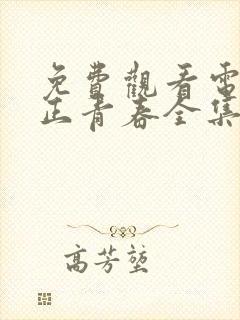 免費觀看電
正青春全集
高芳塹